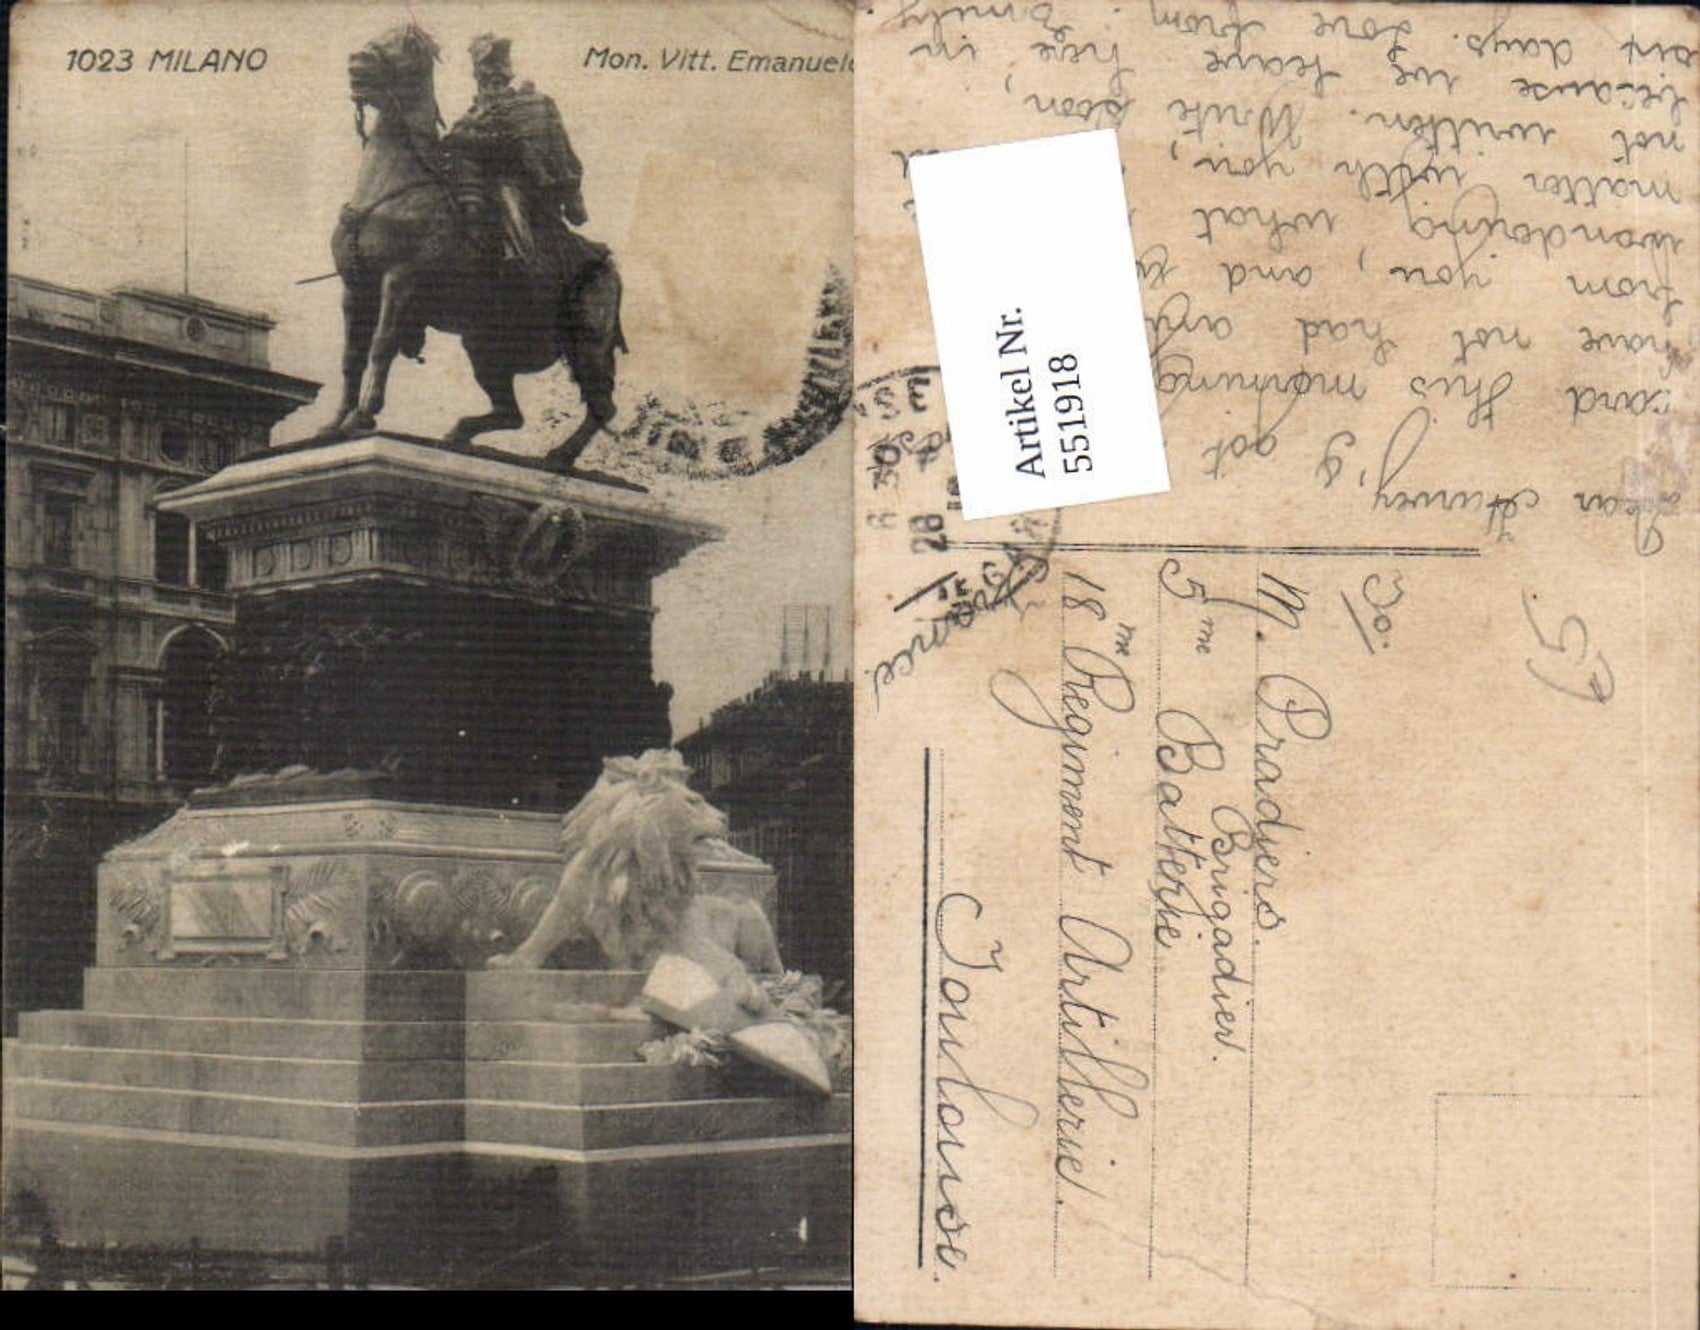 1023 MILANO
Mon. Vitt. Emanuele
Artikel Nr.
551918
Dear Harvey, I got
card this morning
have not had any
from you, and
wondering what
matter with you,
not written. Write soon,
because we leave here in
six days. Love from Emily.
A 30
28
M. Pradjers.
Brigadier.
5me Batterie
18me Regiment Artillerie.
Toulouse.
30.